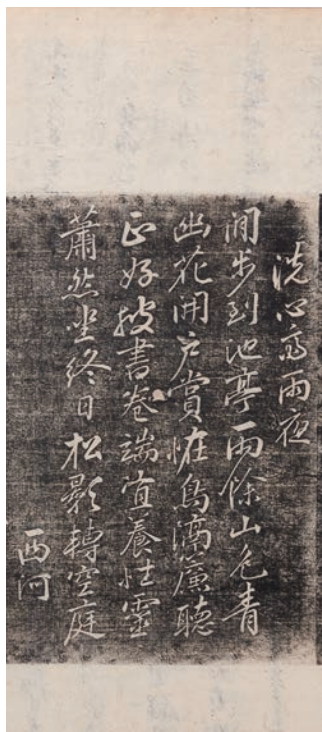 洗心雨夜
閒步到池亭雨餘山色青
幽花開戶賞怪鳥聽
正好披書卷端宜養性靈
蕭然坐終日松影轉空庭
西河